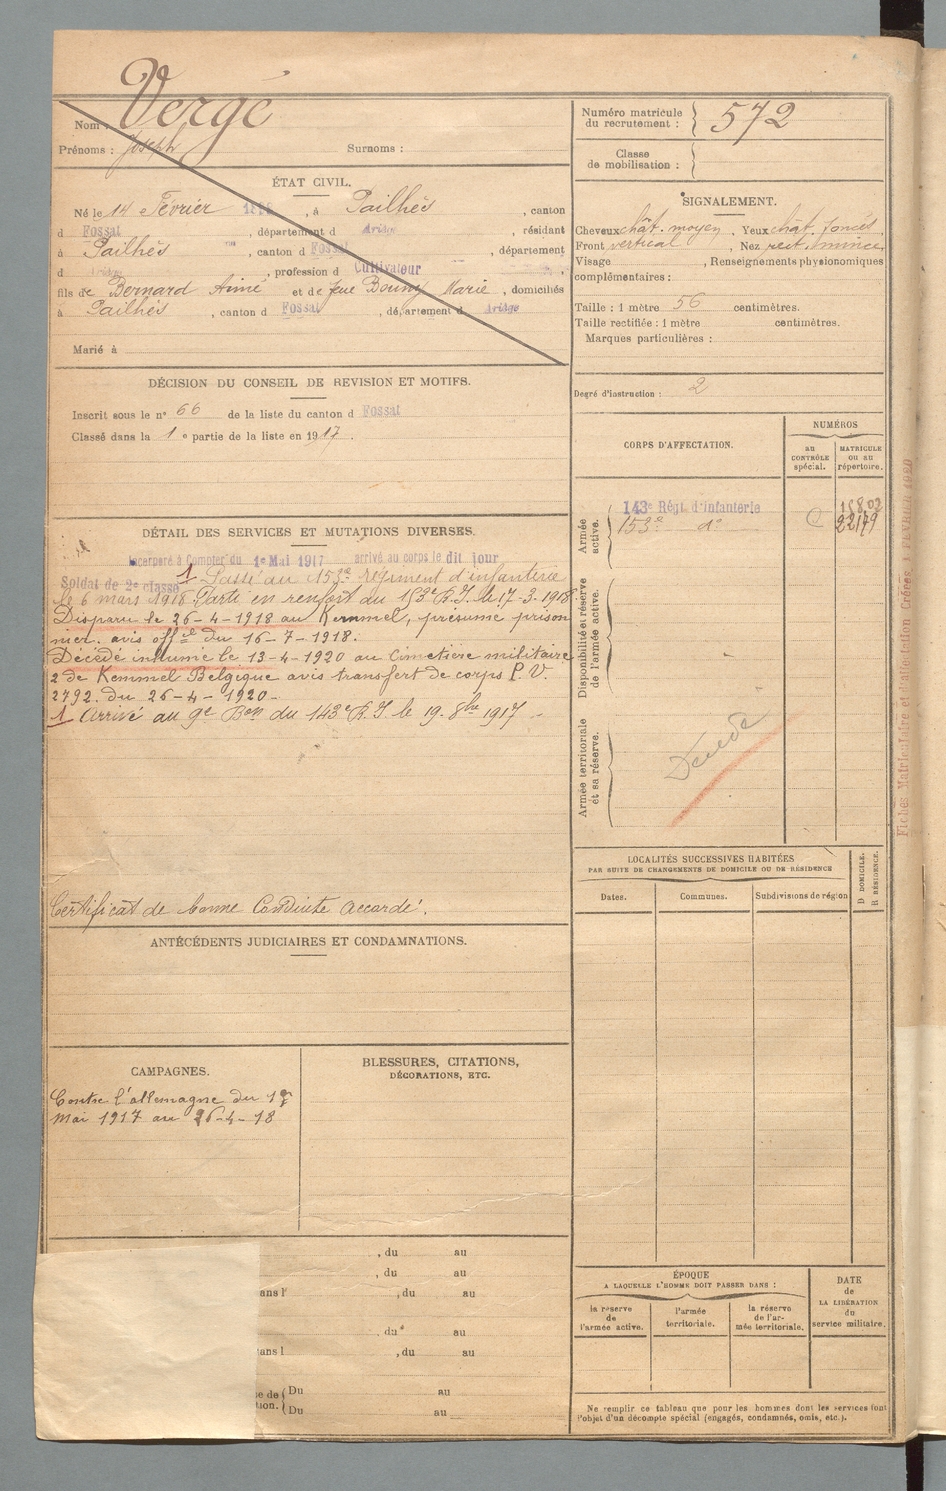 Vergé
Nom :
Prénoms : Joseph Surnoms :
ÉTAT CIVIL.
Né le 14 Février , à Pailhès , canton
d Fossat , département d Ariège , résidant
à Pailhès , canton d Fossat , département
d Ariège , profession d Cultivateur
fils de Bernard Aimé et de feue Bouny Marie , domiciliés
à Pailhès , canton d Fossat , département d Ariège
Marié à
DÉCISION DU CONSEIL DE REVISION ET MOTIFS.
Inscrit sous le n° 66 de la liste du canton d Fossat
Classé dans la 1 e partie de la liste en 1917.
DÉTAIL DES SERVICES ET MUTATIONS DIVERSES.
Incorporé à Compter du 1er Mai 1917 arrivé au corps le dit jour
Soldat de 2e classe 1 Passé au 153e régiment d'infanterie
le 6 mars 1918 Parti en renfort au 153e R.I. le 17-3-1918.
Disparu le 26-4-1918 au Kemmel, présumé prison
nier. avis offel du 16-7-1918.
Décédé inhumé le 13-4-1920 au Cimetière militaire
2 de Kemmel Belgique avis transfert de corps P.V.
2792. du 26-4-1920-
1 Arrivé au 9e Bon du 143e R.I le 19. 8bre 1917 -
Certificat de bonne Conduite Accordé.
ANTÉCÉDENTS JUDICIAIRES ET CONDAMNATIONS.
CAMPAGNES.
Contre l'allemagne du 1er
Mai 1917 au 26-4-18
BLESSURES, CITATIONS,
DÉCORATIONS, ETC.
, du au
, du au
ans l' , du au
, du au
ans l , du au
se de Du au
tion. Du au
Numéro matricule
du recrutement : 572
Classe
de mobilisation :
SIGNALEMENT.
Cheveux chât. moyen , Yeux chât. foncés ,
Front vertical , Nez rect. mince,
Visage , Renseignements physionomiques
complémentaires :
Taille : 1 mètre 56 centimètres.
Taille rectifiée : 1 mètre centimètres.
Marques particulières :
Degré d'instruction : 2
CORPS D'AFFECTATION.
NUMÉROS
au
CONTRÔLE
spécial.
MATRICULE
ou au
répertoire.
Armée
active.
143e Régt d'infanterie
153e do
Disponibilité et réserve
de l'armée active.
Armée territoriale
et sa réserve.
Décédé
LOCALITÉS SUCCESSIVES HABITÉES
PAR SUITE DE CHANGEMENTS DE DOMICILE OU DE RÉSIDENCE
D DOMICILE.
R RÉSIDENCE.
Dates. Communes. Subdivisions de région
ÉPOQUE
A LAQUELLE L'HOMME DOIT PASSER DANS :
la réserve
de
l'armée active.
l'armée
territoriale.
la réserve
de l'ar-
mée territoriale.
DATE
de
LA LIBÉRATION
du
service militaire.
Ne remplir ce tableau que pour les hommes dont les services font
l'objet d'un décompte spécial (engagés, condamnés, omis, etc.).